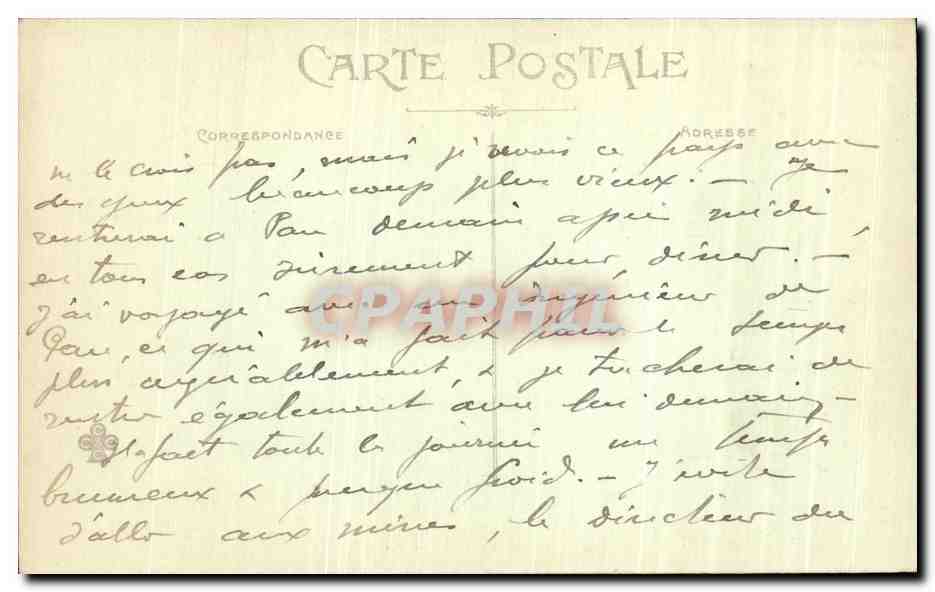 CARTE POSTALE
CORRESPONDANCE
ADRESSE
ne le crois pas, mais je revois ce pays avec
des yeux beaucoup plus vieux. — Je
rentrerai a Pau demain après midi
en tous cas sûrement pour dîner. —
J'ai voyagé avec un ingénieur de
Pau, ce qui m'a fait passer le temps
plus agréablement, & je tacherai de
rentrer également avec lui demain —
Il a fait toute la journée un temps
brumeux & presque froid. — J'évite
d'aller aux mines, le directeur du
CPAPHIL